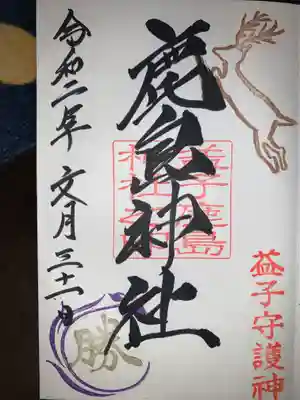 益子守護神
鹿島神社
益子鹿島
神社之印
令和二年 文月三十一日
勝